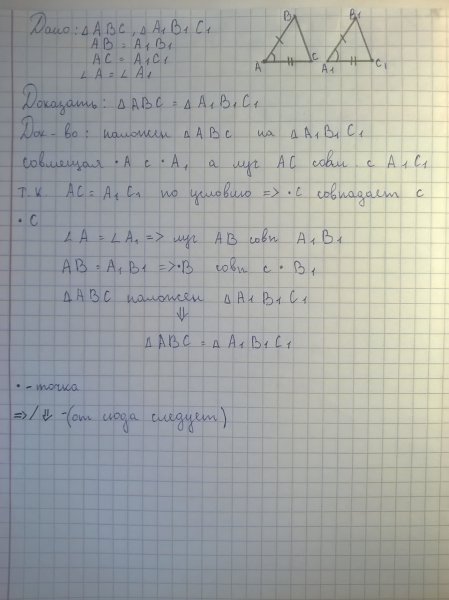 Дано: △ABC, △A₁B₁C₁
AB = A₁B₁
AC = A₁C₁
∠A = ∠A₁
B B₁
A C A₁ C₁
Доказать: △ABC = △A₁B₁C₁
Док-во: наложен △ABC на △A₁B₁C₁
совмещая •A с •A₁, а луч AC совм. с A₁C₁
т.к. AC = A₁C₁ по условию => •C совпадает с
•C
∠A = ∠A₁ => луч AB совп A₁B₁
AB = A₁B₁ => •B совп с •B₁
△ABC наложен △A₁B₁C₁
⇓
△ABC = △A₁B₁C₁
• - точка
=> / ⇓ - (от сюда следует)